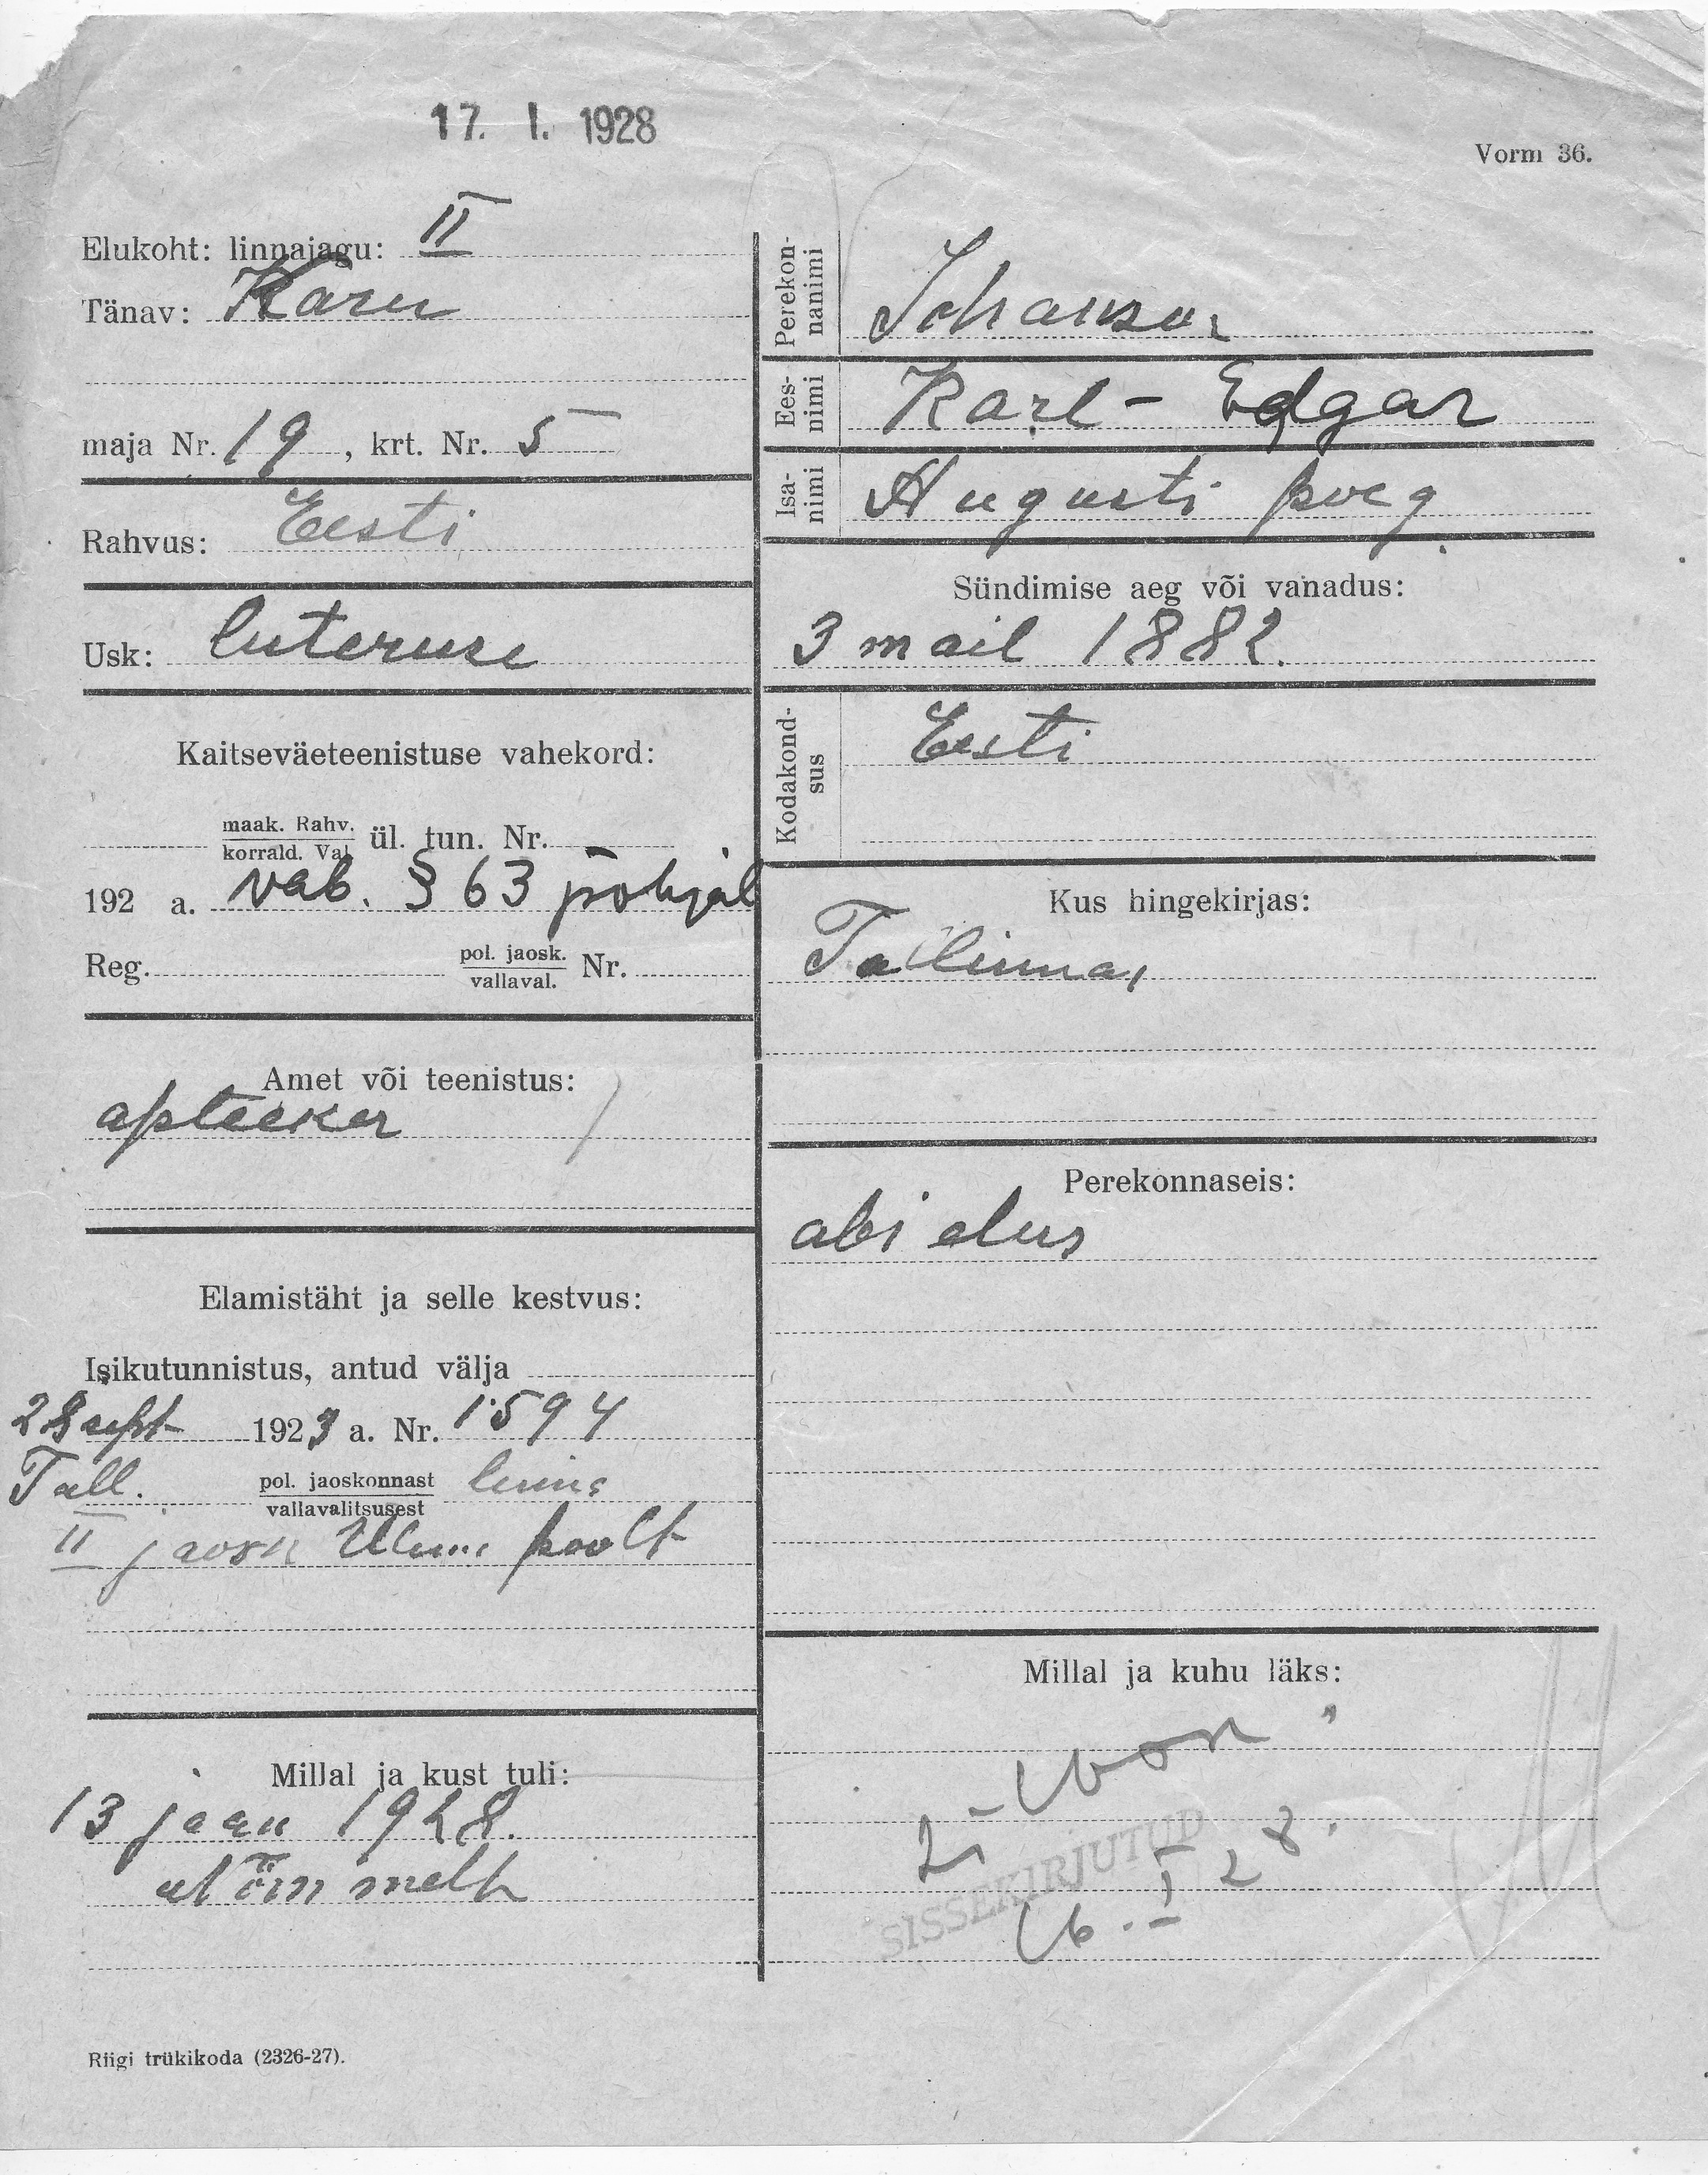 17. I. 1928
Vorm 36.
Elukoht: linnajagu: II
Tänav: Karu
maja Nr. 19, krt. Nr. 5
Rahvus: Eesti
Usk: luteruse
Kaitseväeteenistuse vahekord:
maak. Rahv.
korrald. Val. ül. tun. Nr.
192 a. vab. § 63 põhjal
Reg. pol. jaosk. Nr.
vallaval.
Amet või teenistus:
apteeker
Elamistäht ja selle kestvus:
Isikutunnistus, antud välja
28 sept 1923 a. Nr. 1594
Tall. pol. jaoskonnast linna
vallavalitsusest
II jaosk. poolt
Millal ja kust tuli:
13 jaan 1928.
Nõmmelt
Perekon-
nanimi Johanson
Ees-
nimi Karl-Edgar
Isa-
nimi Augusti poeg
Sündimise aeg või vanadus:
3 mail 1882.
Kodakond-
sus Eesti
Kus hingekirjas:
Tallinnas
Perekonnaseis:
abielus
Millal ja kuhu läks:
SISSEKIRJUTUD
16. I 28.
Riigi trükikoda (2326-27).